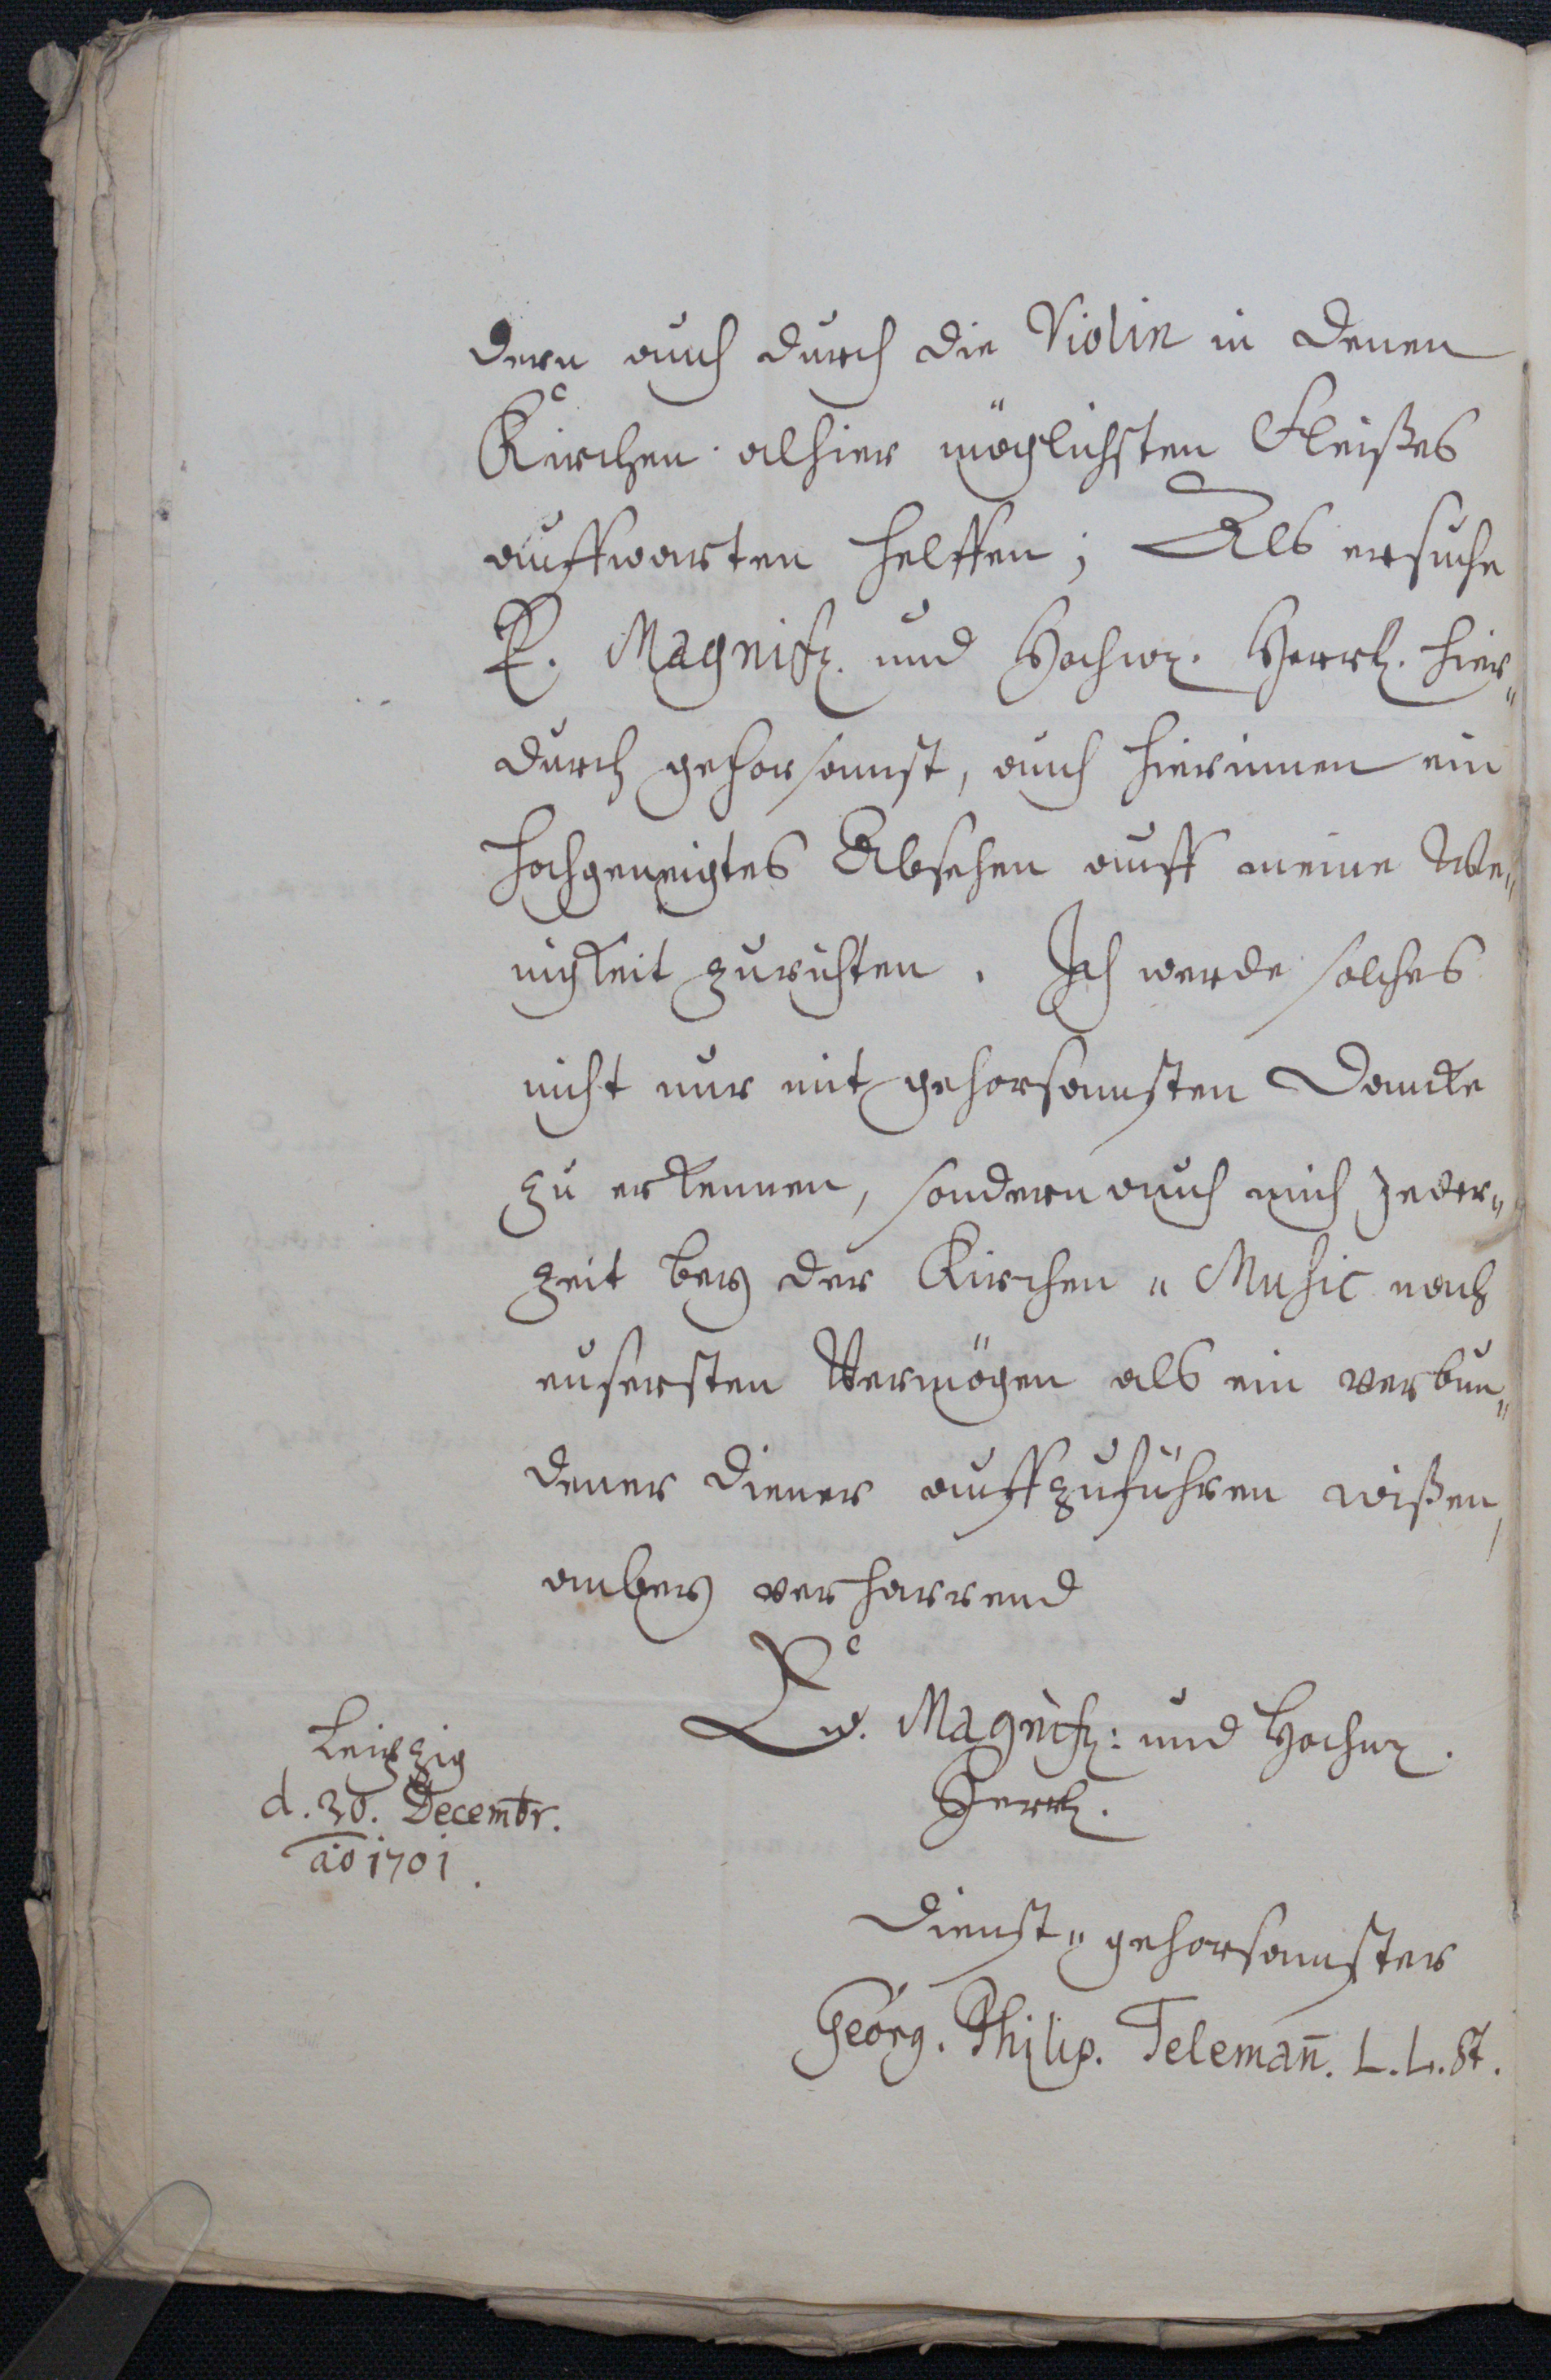 dern auch durch die Violin in denen
Kirchen alhier möglichsten Fleißes
auffwarten helffen; Als ersuche
E. Magnifz. und Hochw. Herrl. hier„
durch gehorsamst, auch hierinnen ein
hochgeneigtes Absehen auff meine We„
nigkeit zurichten. Ich werde solches
nicht nur mit gehorsamsten Dancke
zu erkennen, sondern auch mich jeder„
zeit bey der Kirchen„Music nach
eusersten Vermögen als ein verbun„
dener Diener auffzuführen wißen,
anbey verharrend
Ew. Magnifz: und Hochw.
Herrl.
Leipzig
d. 20. Decembr.
ao 1701.
Dienst„gehorsamster
Georg. Philip. Telemañ. L. L. St.